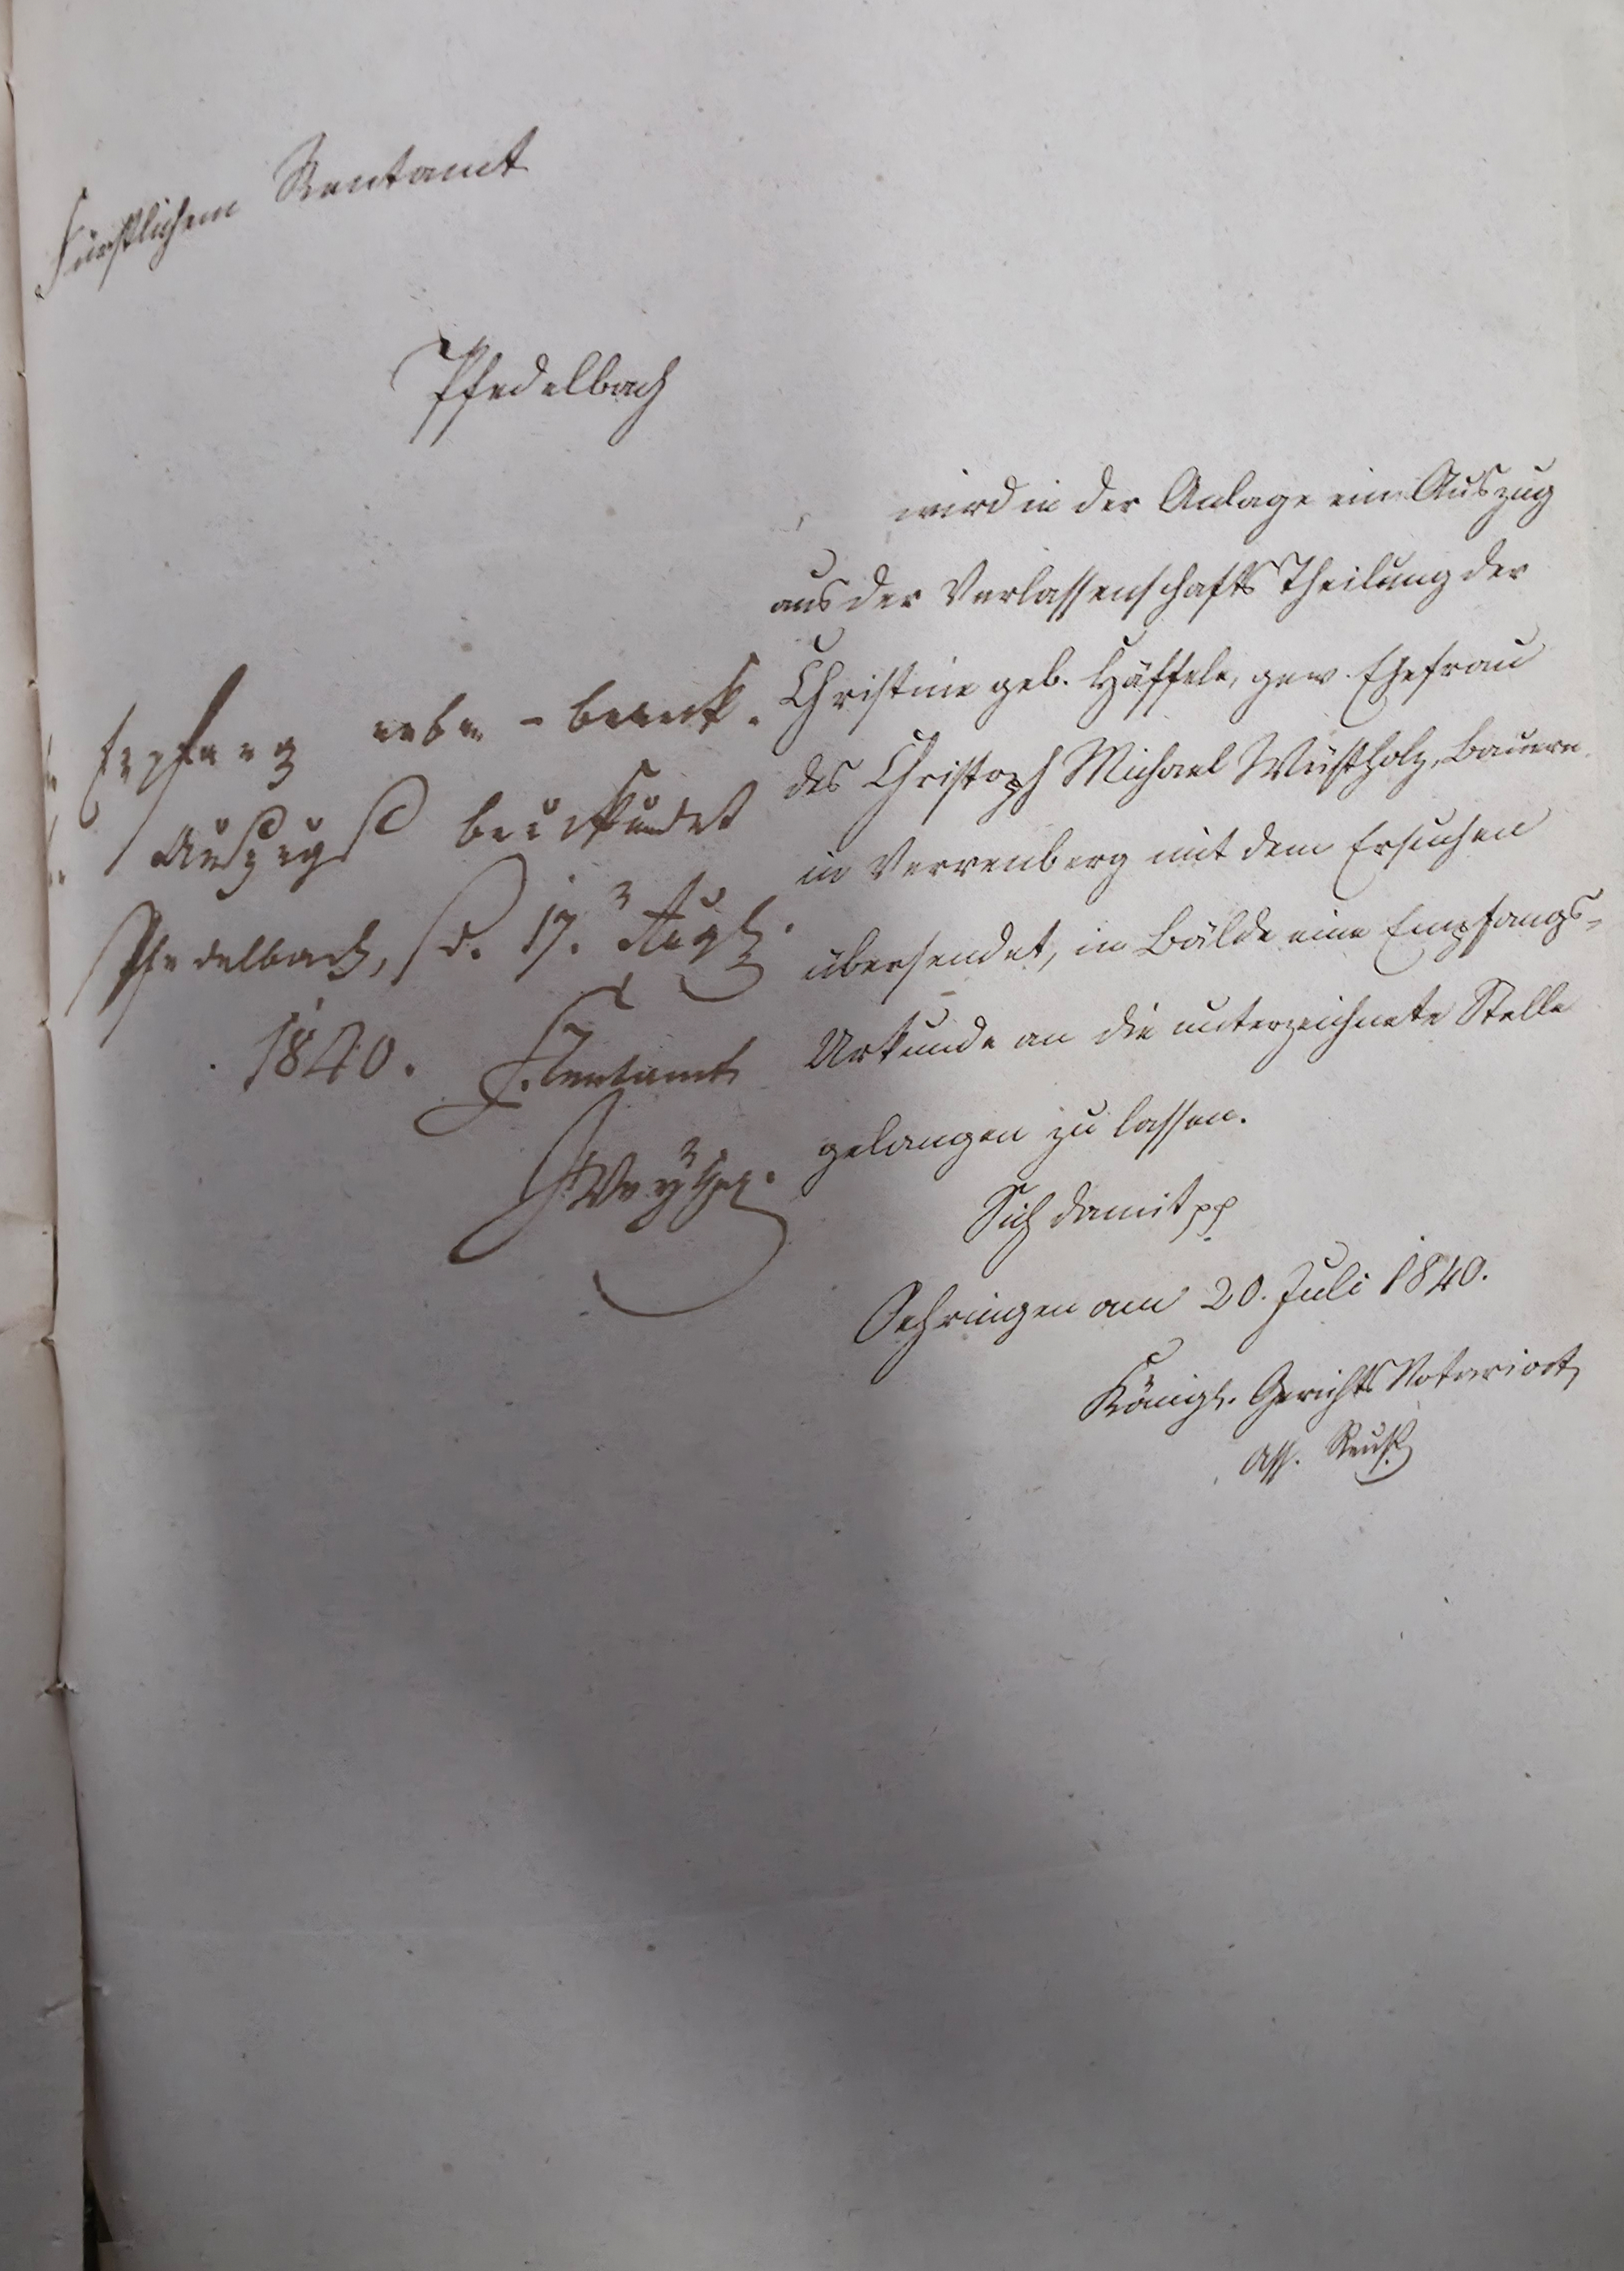 Fürstlichem Rentamt
Pfedelbach
wird in der Anlage ein Auszug
aus der Verlassenschafts Theilung der
Christine geb. Häffele, gew. Ehefrau
des Christoph Michael Wüstholz, Bauern
in Verrenberg mit dem Ersuchen
übersendet, in Bälde eine Empfangs-
Urkunde an die unterzeichnete Stelle
gelangen zu lassen.
Sich damit pp
Oehringen am 20. Juli 1840.
Königl. Gerichts Notariat,
Ass. Reuß
Empfang neben-bemerkt.
Auszugs beurkundet
Pfedelbach, d. 17. Aug.
1840. F. Rentamt